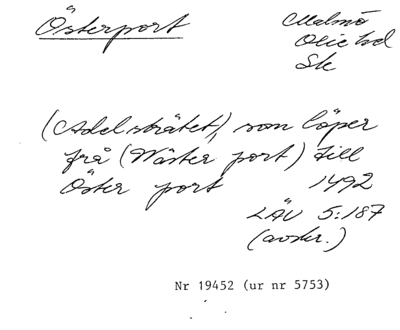 Österport
Malmö
Oxie hd
Sk
(Adelsträtet), som löper
frå (Wäster port) till
Öster port 1492
LÄU 5:187
(avskr.)
Nr 19452 (ur nr 5753)